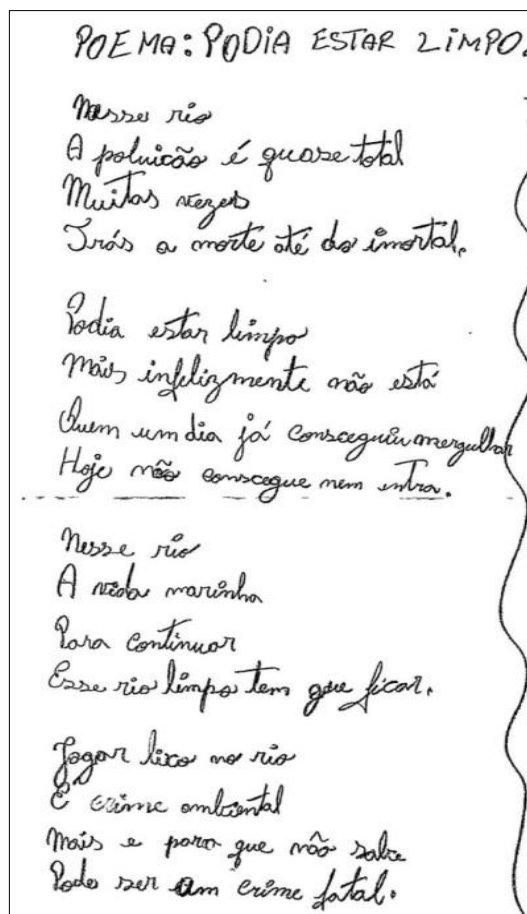 POEMA: PODIA ESTAR LIMPO.
Nesse rio
A poluicão é quase total
Muitas vezes
Trás a morte até do imortal.
Podia estar limpo
Mais infelizmente não está
Quem um dia já consceguiu mergulhar
Hoje não conscegue nem entra.
Nesse rio
A vida marinha
Para continuar
Esse rio limpo tem que ficar.
Jogar lixo no rio
É crime ambiental
Mais e para que não sabe
Pode ser um crime fatal.